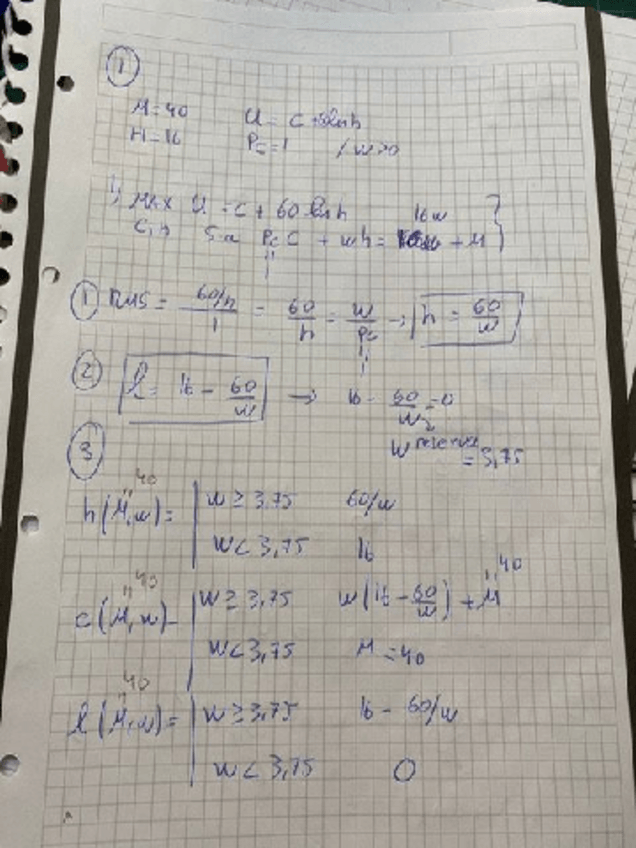 ①
M=40 U = C + 60 ln h
H=16 Pc=1 / w>0
1) MAX U = C + 60 ln h 16w
C, h s.a Pc C + wh = + M
"
1
① RMS = 60/h / 1 = 60/h = w/Pc → h = 60/w
"
1
② l = 16 - 60/w → 16 - 60/w = 0
w reserva = 3,75
③
40
"
h(M,w) = w ≥ 3,75 60/w
w < 3,75 16
40 40
" "
c(M,w) = w ≥ 3,75 w(16 - 60/w) + M
w < 3,75 M = 40
40
"
l(M,w) = w ≥ 3,75 16 - 60/w
w < 3,75 0